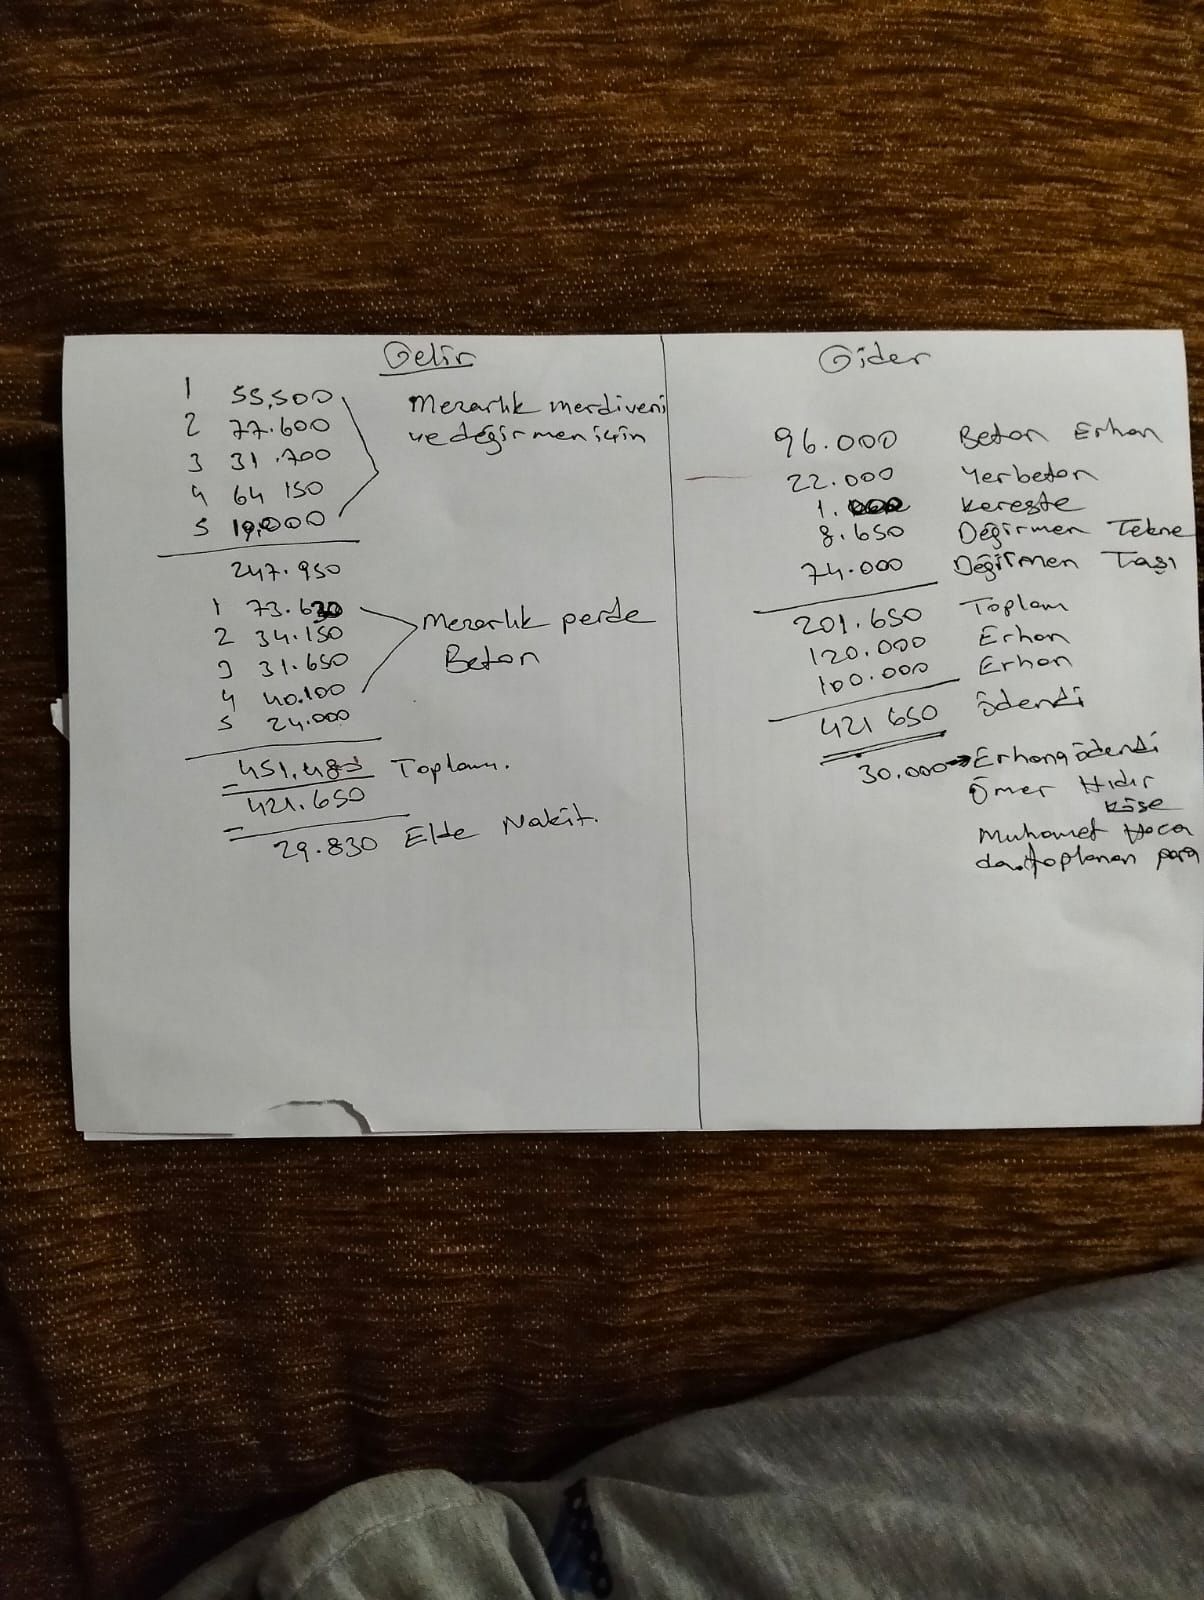 Gelir
1 55,500
2 77.600
3 31.700
4 64 150
5 19.000
Mezarlık merdiveni
ve değirmen için
247.950
1 73.630
2 34.150
3 31.650
4 40.100
5 24.000
Mezarlık perde
Beton
451.480 Toplam.
421.650
29.830 Elde Nakit.
Gider
96.000 Beton Erhan
22.000 Yerbeton
1.000 Kereste
8.650 Değirmen Tekne
74.000 Değirmen Taşı
201.650 Toplam
120.000 Erhan
100.000 Erhan
421 650 ödendi
30.000 → Erhana ödendi
Ömer Hıdır
Köse
Muhamet Hoca
dan toplanan para